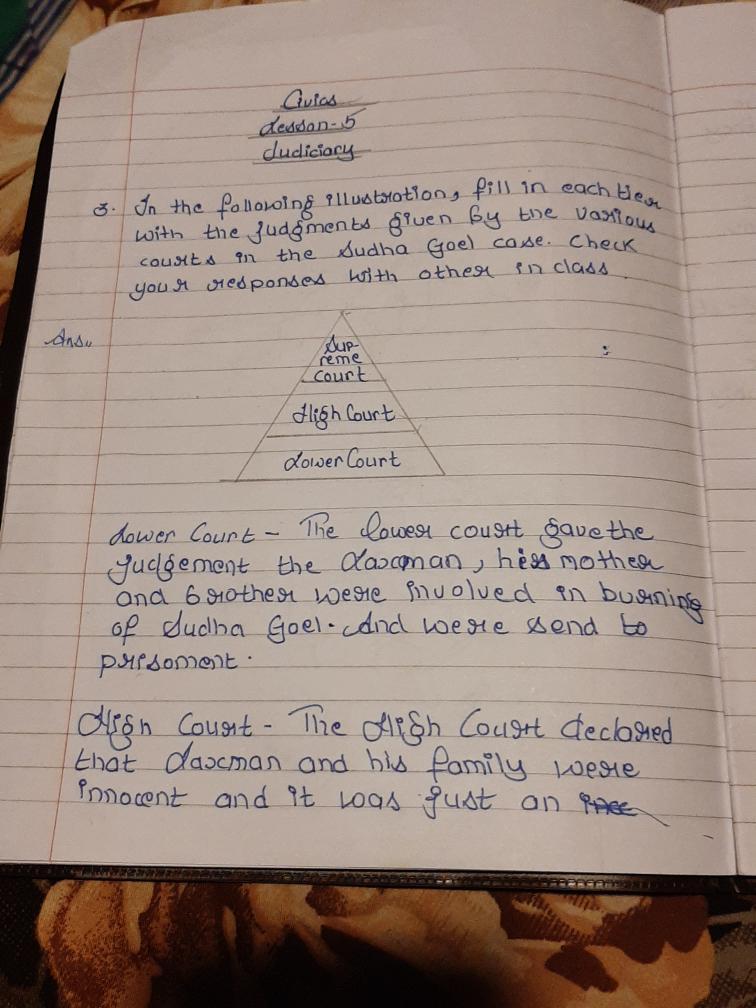 Civics
Lesson-5
Judiciary
3. In the following illustration, fill in each tier
with the judgments given by the various
courts in the Sudha Goel case. Check
your responses with other in class.
Ans.
Sup-
reme
court
High Court
Lower Court
Lower Court - The lower court gave the
judgement the Laxman, his mother
and brother were involved in burning
of Sudha Goel. And were send to
prisoment.
High Court - The High Court declared
that Laxman and his family were
innocent and it was just an